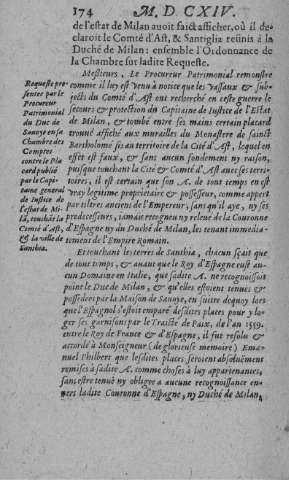 174 M. D CXIV.
de l'estat de Milan auoit faict afficher, où il de-
claroit le Comté d'Ast, & Santiglia retinis à la
Duché de Milan: ensemble l'Ordonnance de
la Chambre sur ladite Requeste.
Messieurs, Le Procureur Patrimonial remonstre
comme il luy est venu à notice que les Vassaux & sub-
jects du Comté d'Ast ont recherché en ceste guerre le
secours & protection du Capitaine de Iustice de l'Estat
de Milan, & tombé entre ses mains certain placard
trouué affiché aux murailles du Monastere de sainct
Bartholomé sis au territoire de la Cité d'Ast, lequel en
effet est faux, & sans aucun fondement ny raison,
puisque touchant la Cité & Comté d'Ast auec ses terri-
toires, il est certain que son A. de tout temps en est
vray legitime proprietaire & possesseur, comme appert
par tiltres anciens de l'Empereur, sans qu'il aye, ny ses
predecesseurs, iamais recogneu ny releué de la Couronne
d'Espagne ny du Duché de Milan, les tenant immedia-
tement de l'Empire Romain.
Et touchant les terres de Santhia, chacun sçait que
de tous temps, & auant que le Roy d'Espagne eust au-
cun Domaine en Italie, que sadite A. ne recognoissoit
point le Duc de Milan, & qu'elles estoient tenues &
possedees par la Maison de Sauoye, en suitte dequoy lors
que l'Espagnol s'estoit emparé desdites places pour y lo-
ger ses garnisons par le Traicté de Paix, de l'an 1559.
entre les Roy de France & d'Espagne, il fut resolu &
accordé à Monseigneur (de glorieuse memoire) Ema-
nuel Philbert que lesdites places seroient absolument
remises à sadite A. comme choses à luy appartenantes,
sans estre tenu ny obligee a aucune recognoissance en-
uers ladite Couronne d'Espagne, ny Duché de Milan,
Requeste pre-
sentee par le
Procureur
Patrimonial
du Duc de
Sauoye en sa
Chambre des
Comptes
contre le Pla
card publié
par le Capi-
taine general
de Iustice de
l'estat de Mi-
lã, touchãt la
Comté d'Ast,
& la ville de
Santhia.